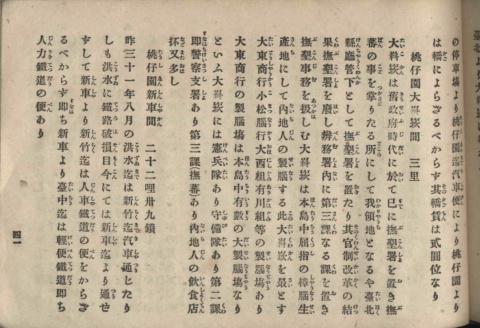 の停車場より桃仔園迄汽車便により桃仔園より
は轎によらざるべからず其轎賃は貳圓位なり
桃仔園大嵙崁間　三里
大嵙崁は舊政府時代に於て已に撫墾署を置き撫
蕃の事を掌りたる所にして我領地となるや臺北
縣廳管下として撫墾署を置たり其官制改革の結
果撫墾署を廢し辨務署內に第三課なる課を置き
撫墾事務を扱しむ大嵙崁は本島中屈指の樟腦生
產地にして內地人の製腦する此大嵙崁を最とす
大東商行小松腦行大西組有川組等の製腦塲あり
大東商行の製腦塲は本島中有數の大製腦塲なり
といふ大嵙崁には憲兵隊あり守備隊あり第二課
即警察支署あり第三課(撫蕃)あり內地人の飲食店
抔又多し
桃仔園新車間　二十二哩卅九鎖
昨三十一年八月の洪水迄は新竹迄汽車通じたり
しも洪水に鐵路破損目今にては新車迄より通ぜ
ずして新車より新竹迄は人車鐵道の便をからざ
るべからず即ち新車より臺中迄は輕便鐵道即ち
人力鐵道の便あり
四一